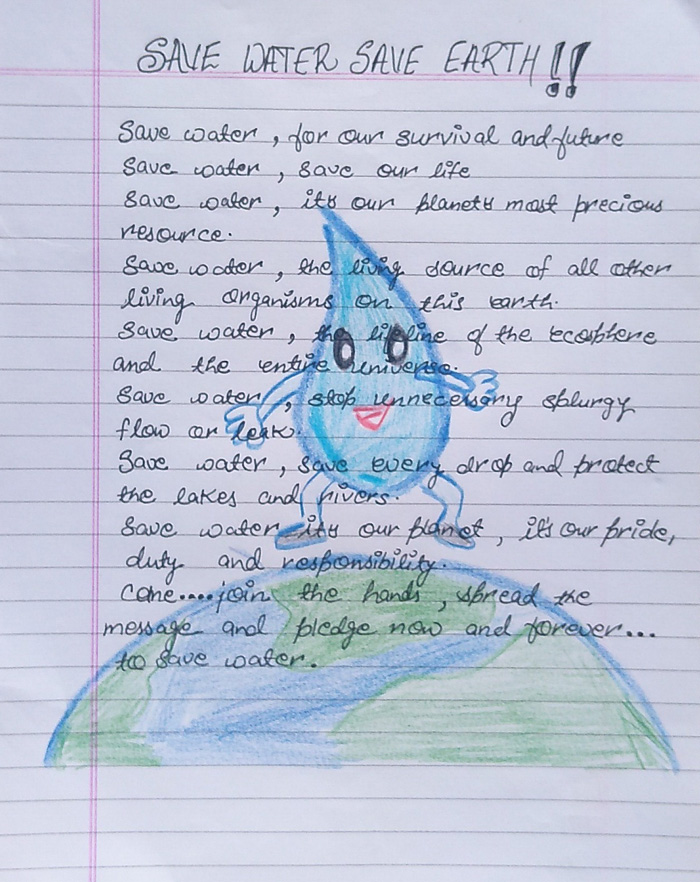 SAVE WATER SAVE EARTH!!
Save water, for our survival and future
Save water, save our life
Save water, its our planets most precious
resource.
Save water, the living source of all other
living organisms on this earth.
Save water, the lifeline of the ecosphere
and the entire universe.
Save water, stop unnecessary splurgy
flow or leak.
Save water, save every drop and protect
the lakes and rivers.
Save water its our planet, it's our pride,
duty and responsibility.
Come....join the hands, spread the
message and pledge now and forever...
to save water.